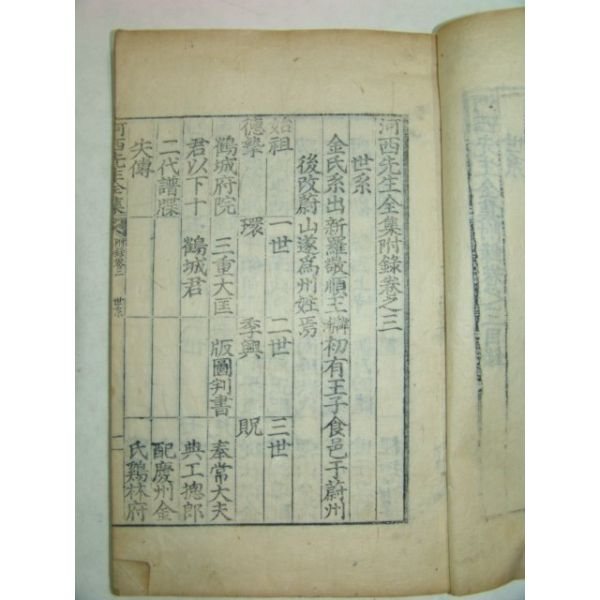 河西先生全集附錄卷之三
世系
金氏系出新羅敬順王麟初有王子食邑于蔚州
後改蔚山遂爲州姓焉
始祖 一世 二世 三世
德摯 環 季興 貺
鶴城府院 三重大匡 版圖判書 奉常大夫
君以下十 鶴城君 典工摠郎
二代譜牒 配慶州金
失傳 氏鷄林府
河西先生全集 附錄卷三 世系 一